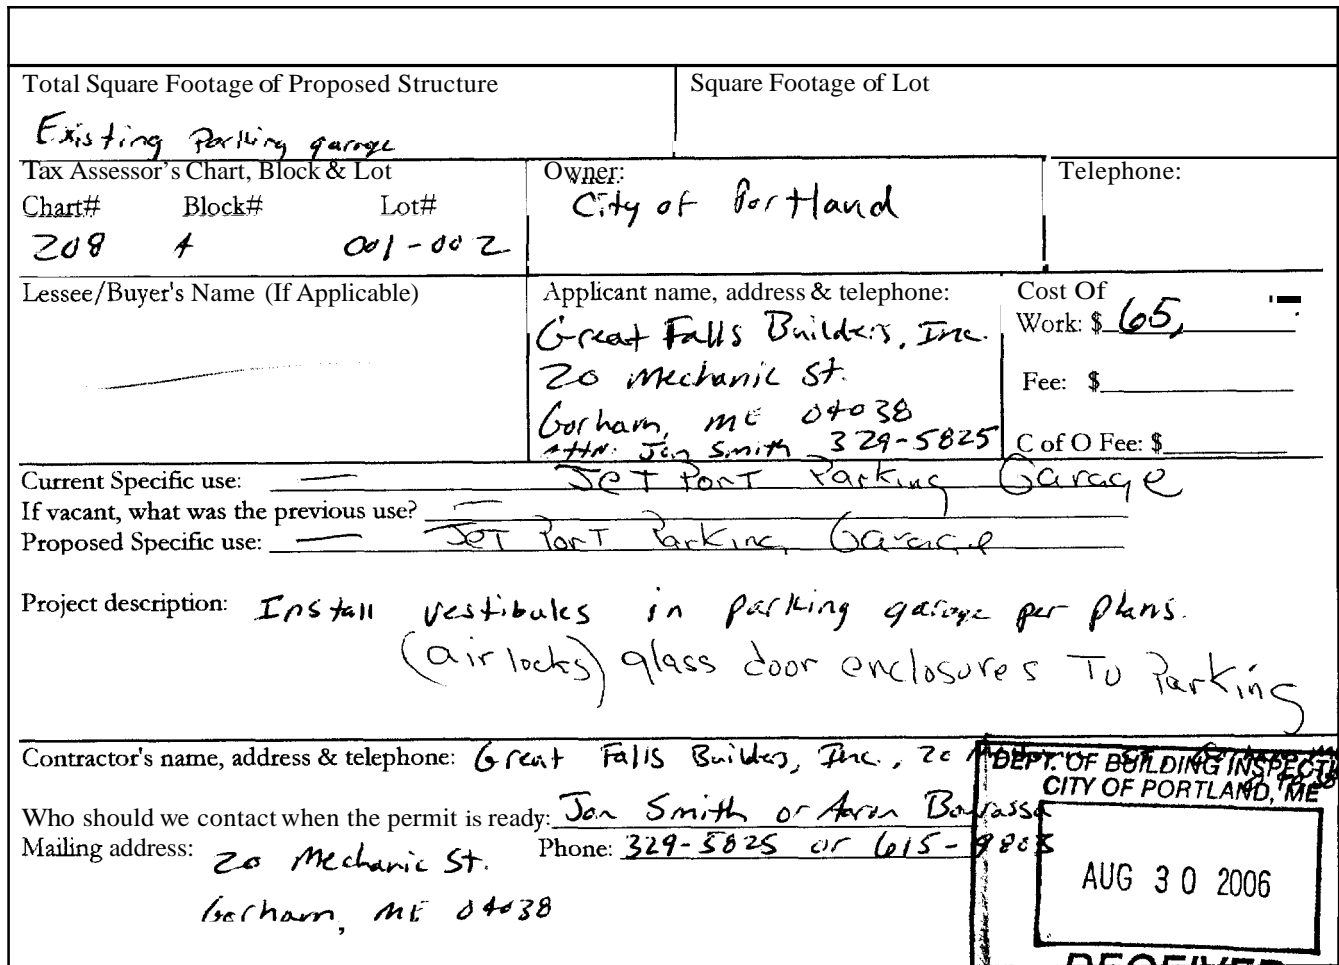 Total Square Footage of Proposed Structure
Square Footage of Lot
Existing Parking garage
Tax Assessor's Chart, Block & Lot
Chart# Block# Lot#
208 A 001-002
Owner:
City of Portland
Telephone:
Lessee/Buyer's Name (If Applicable)
Applicant name, address & telephone:
Great Falls Builders, Inc.
20 Mechanic St.
Gorham, ME 04038
Attn: Jon Smith 329-5825
Cost Of
Work: $ 65,
Fee: $
C of O Fee: $
Current Specific use: Jet Port Parking Garage
If vacant, what was the previous use?
Proposed Specific use: Jet Port Parking Garage
Project description: Install vestibules in parking garage per plans.
(air locks) glass door enclosures To Parking
Contractor's name, address & telephone: Great Falls Builders, Inc., 20
Who should we contact when the permit is ready: Jon Smith or Aaron Bourassa
Mailing address: 20 Mechanic St. Phone: 329-5825 or 615-9803
Gorham, ME 04038
DEPT. OF BUILDING INSPECTI
CITY OF PORTLAND, ME
AUG 30 2006
RECEIVED